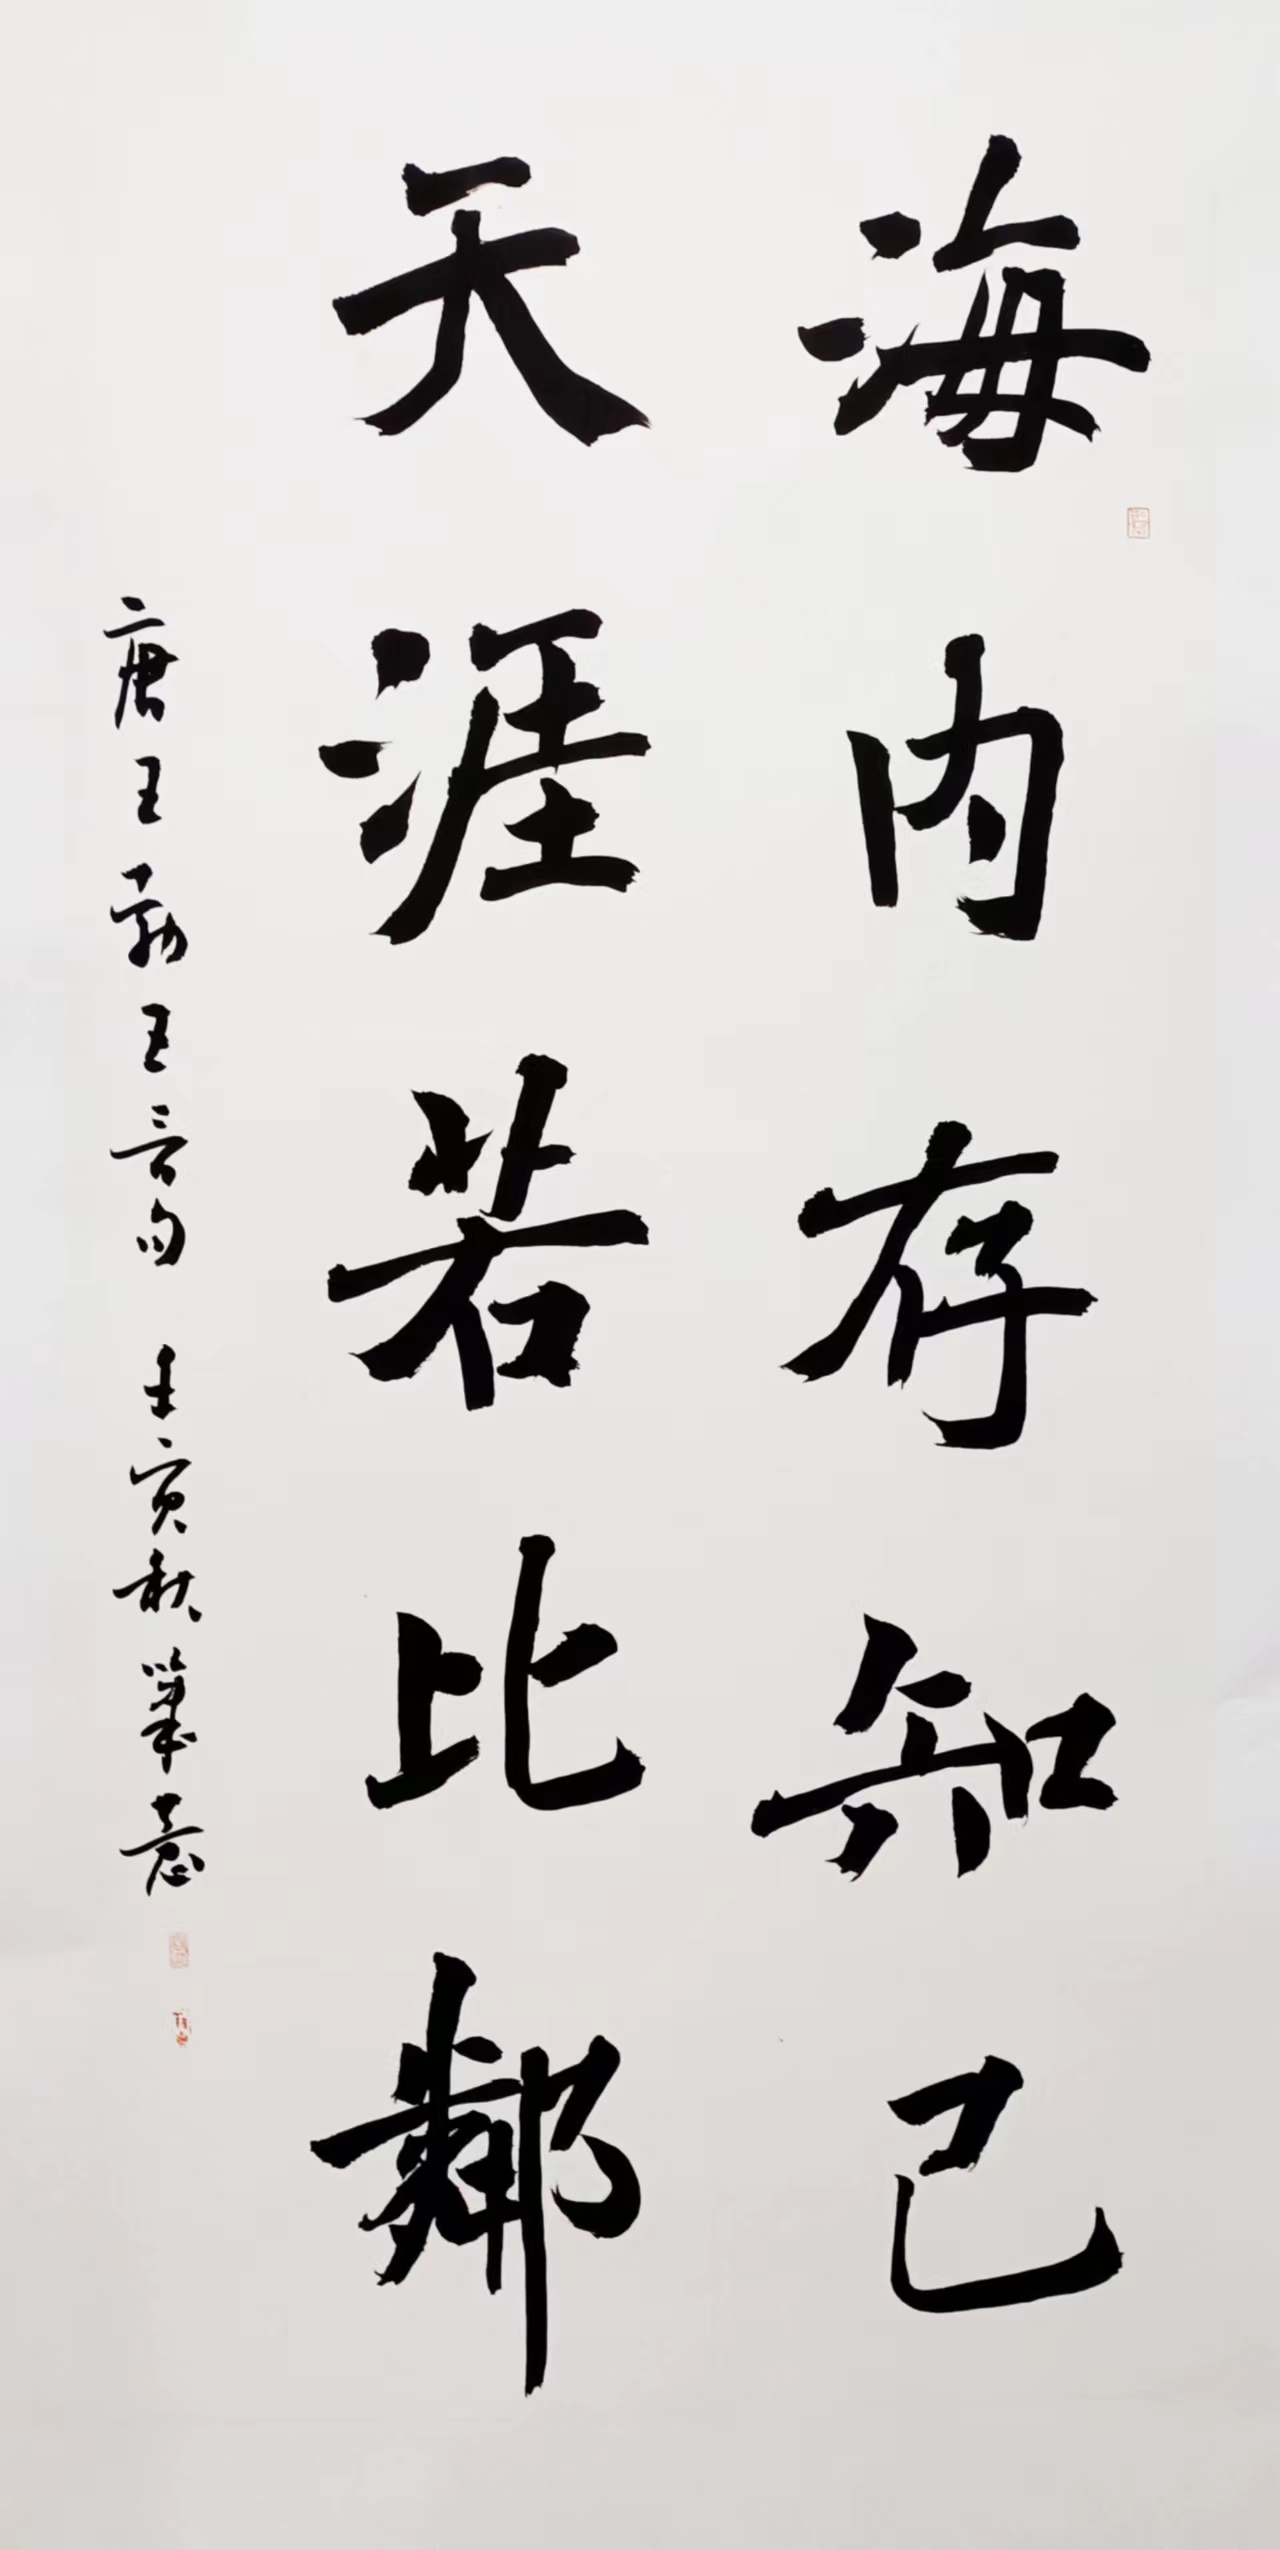 海内存知己
天涯若比鄰
唐王勃五言句 壬寅秋肇意